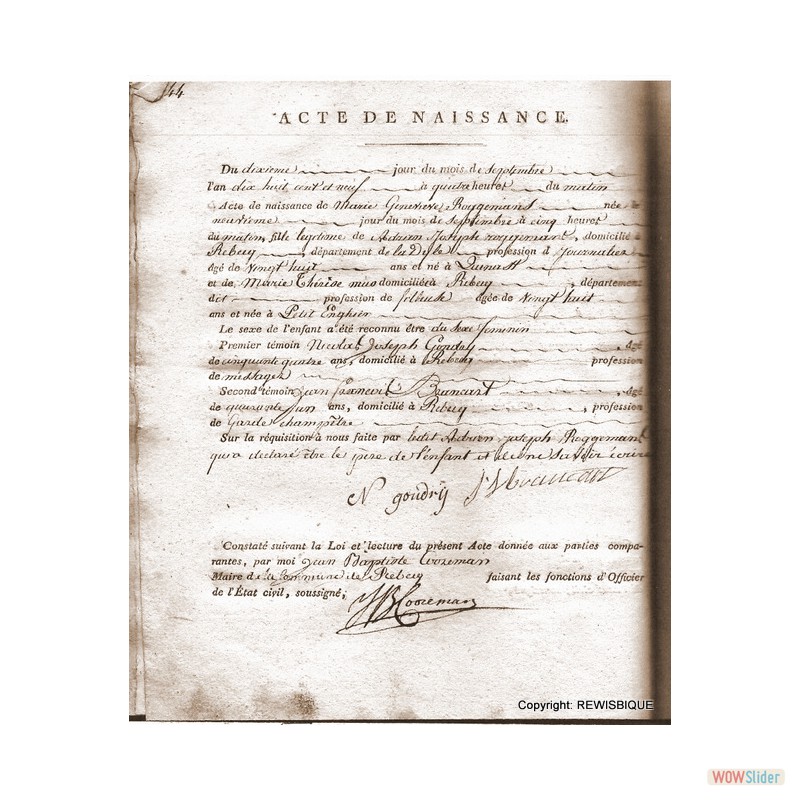 44
ACTE DE NAISSANCE.
Du dixieme jour du mois de Septembre
l'an dix huit cent et neuf à quatre heures du matin
Acte de naissance de Marie Genevieve Roggemans née le
neuvieme jour du mois de Septembre à cinq heures
du matin, fille legitime de Adrien Joseph roggemans, domicilié à
Rebecq, département de la Dyle, profession d journalier
âgé de vingt huit ans et né à Quenast
et de Marie Thérèse domiciliée à Rebecq, département
dit profession de fileuse âgée de vingt huit
ans et née à Petit Enghien
Le sexe de l'enfant a été reconnu être du sexe feminin
Premier témoin Nicolas Joseph Goudry, âgé
de cinquante quatre ans, domicilié à Rebecq profession
de messager
Second témoin jean francois Brancart, âgé
de quarante un ans, domicilié à Rebecq, profession
de Garde champêtre
Sur la réquisition à nous faite par ledit Adrien joseph Roggemans
qui a declaré être le pere de l'enfant et de ne savoir écrire
N goudrÿ
Constaté suivant la Loi et lecture du présent Acte donnée aux parties compa-
rantes, par moi Jean Baptiste Cooreman
Maire d la Commune de Rebecq faisant les fonctions d'Officier
de l'État civil, soussigné;
JB Cooreman
Copyright: REWISBIQUE
WOWSlider